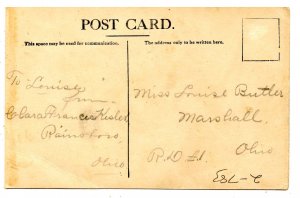 POST CARD.
This space may be used for communication.
The address only to be written here.
To "Louise"
from
Clara Francis Kisler
Rainsboro,
Ohio
Miss Louise Butler
Marshall,
R.D.#1.
Ohio